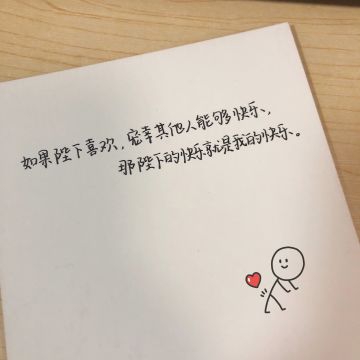 如果陛下喜欢,宠幸其他人能够快乐、
那陛下的快乐就是我的快乐、。